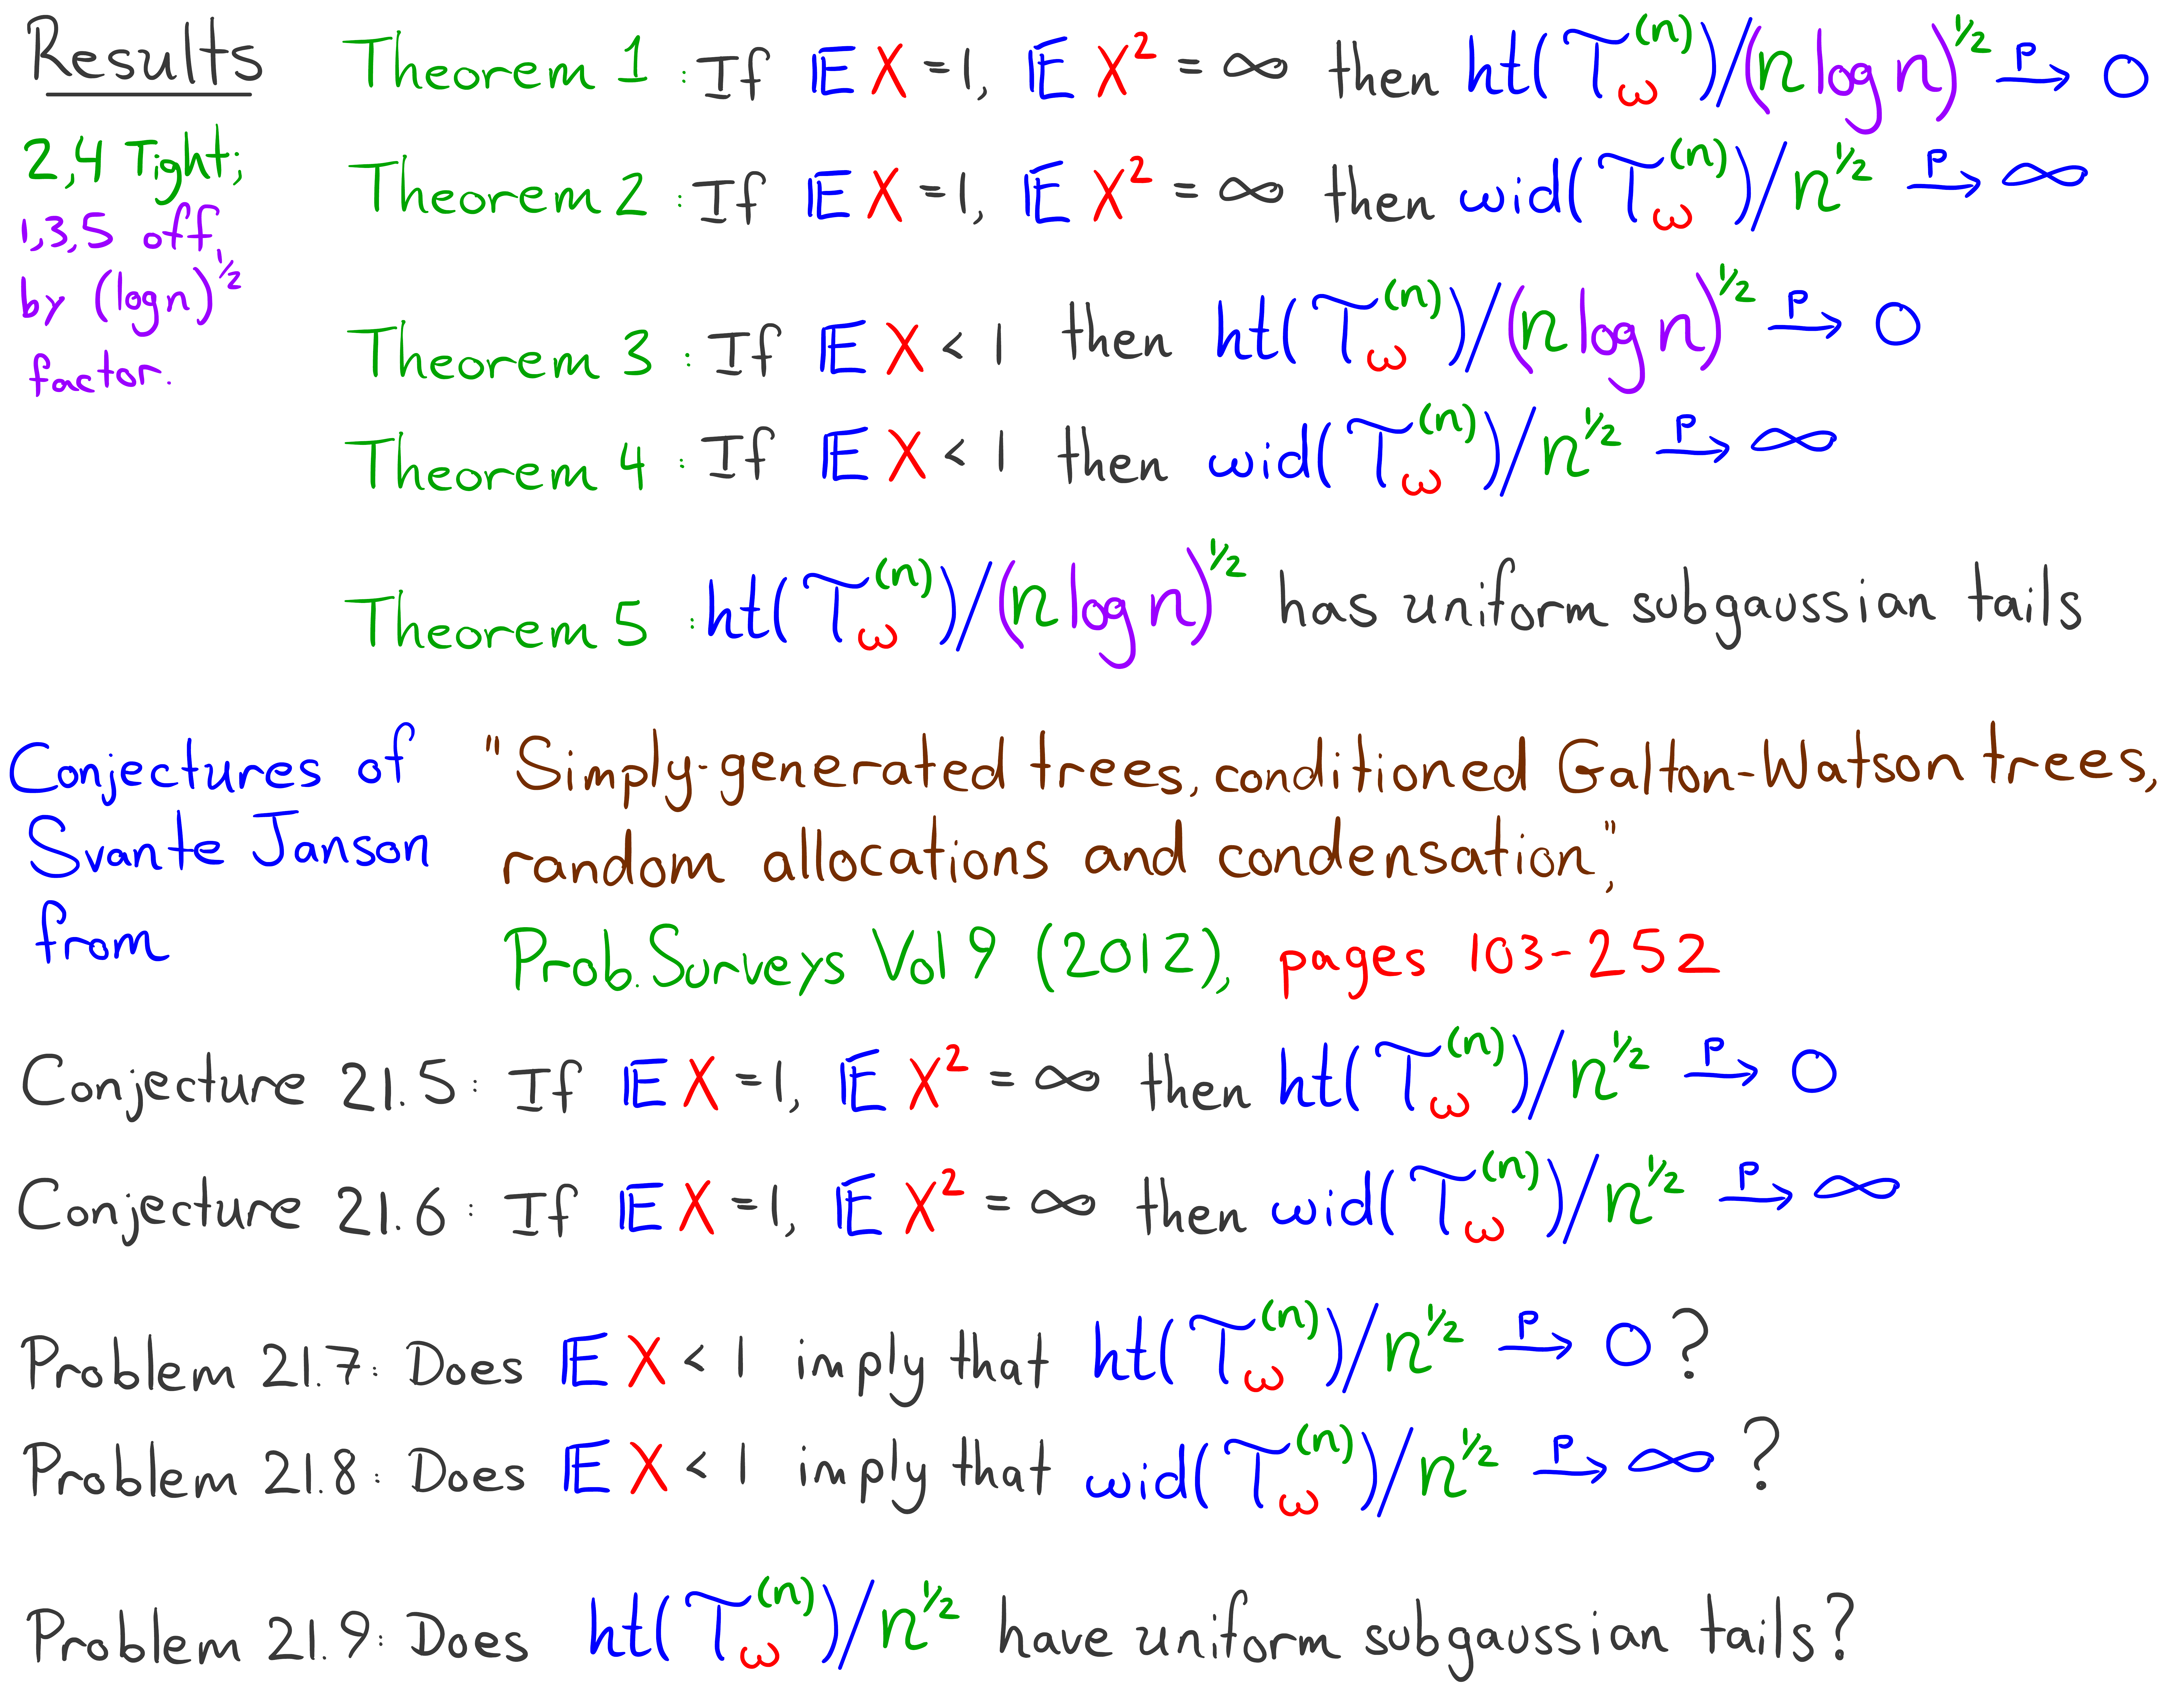 Results
Theorem 1: If 𝔼X=1, 𝔼X² = ∞ then ht(T_ω^(n))/(n log n)^½ →^P 0
2,4 Tight;
1,3,5 off
by (log n)^½
factor.
Theorem 2: If 𝔼X=1, 𝔼X² = ∞ then wid(T_ω^(n))/n^½ →^P ∞
Theorem 3: If 𝔼X < 1 then ht(T_ω^(n))/(n log n)^½ →^P 0
Theorem 4: If 𝔼X < 1 then wid(T_ω^(n))/n^½ →^P ∞
Theorem 5: ht(T_ω^(n))/(n log n)^½ has uniform subgaussian tails
Conjectures of
Svante Janson
from
"Simply-generated trees, conditioned Galton-Watson trees,
random allocations and condensation",
Prob. Surveys Vol 9 (2012), pages 103-252
Conjecture 21.5: If 𝔼X=1, 𝔼X² = ∞ then ht(T_ω^(n))/n^½ →^P 0
Conjecture 21.6: If 𝔼X=1, 𝔼X² = ∞ then wid(T_ω^(n))/n^½ →^P ∞
Problem 21.7: Does 𝔼X < 1 imply that ht(T_ω^(n))/n^½ →^P 0?
Problem 21.8: Does 𝔼X < 1 imply that wid(T_ω^(n))/n^½ →^P ∞?
Problem 21.9: Does ht(T_ω^(n))/n^½ have uniform subgaussian tails?